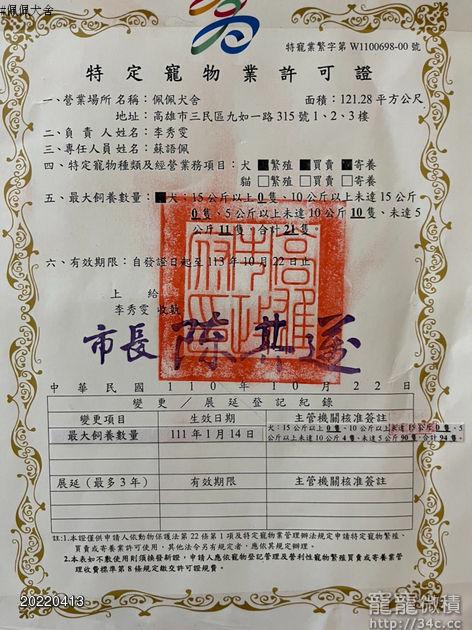 #佩佩犬舍
特寵業繁字第 W1100698-00 號
特定寵物業許可證
一、營業場所名稱：佩佩犬舍 面積：121.28 平方公尺
地址：高雄市三民區九如一路 315 號 1、2、3 樓
二、負責人姓名：李秀雯
三、專任人員姓名：蘇語佩
四、特定寵物種類及經營業務項目：犬 ■繁殖 ■買賣 ■寄養
貓 □繁殖 □買賣 □寄養
五、最大飼養數量：■犬：15 公斤以上 0 隻、10 公斤以上未達 15 公斤
0 隻、5 公斤以上未達 10 公斤 10 隻、未達 5
公斤 11 隻，合計 21 隻。
六、有效期限：自發證日起至 113 年 10 月 22 日止
上給
李秀雯 收執
市長 陳其邁
中華民國 110 年 10 月 22 日
變更／展延登記紀錄
變更項目 生效日期 主管機關核准簽註
最大飼養數量 111 年 1 月 14 日 犬：15 公斤以上 0 隻、10 公斤以上未達 15 公斤 0 隻、5
公斤以上未達 10 公斤 4 隻、未達 5 公斤 90 隻，合計 94 隻。
展延（最多 3 年） 有效期限 主管機關核准簽註
註:1.本證僅供申請人依動物保護法第 22 條第 1 項及特定寵物業管理辦法規定申請特定寵物繁殖、
買賣或寄養業許可使用，其他法令另有規定者，應依其規定辦理。
2.本表如不敷使用則須換發新證，申請人應依寵物登記管理及營利性寵物繁殖買賣或寄養業管
理收費標準第 8 條規定繳交許可證規費。
20220413
寵寵微積
http://34c.cc